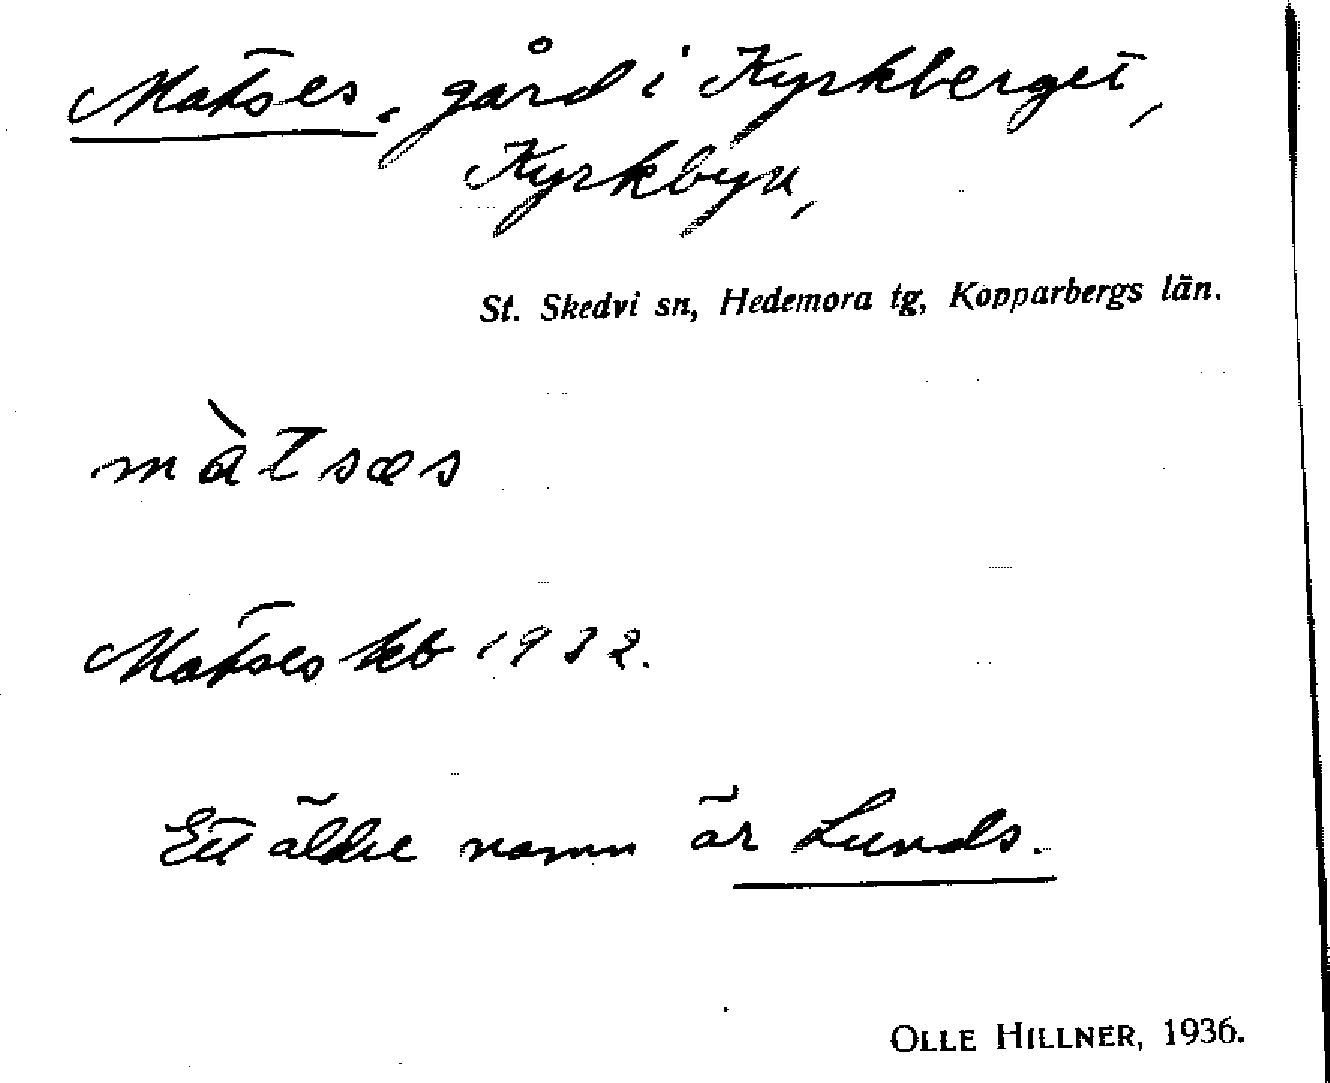 Matses, gård i Kyrkberget,
Kyrkbyn,
St. Skedvi sn, Hedemora tg, Kopparbergs län.
màtsæs
Matses kb 1932.
Ett äldre namn är Lunds.
OLLE HILLNER, 1936.